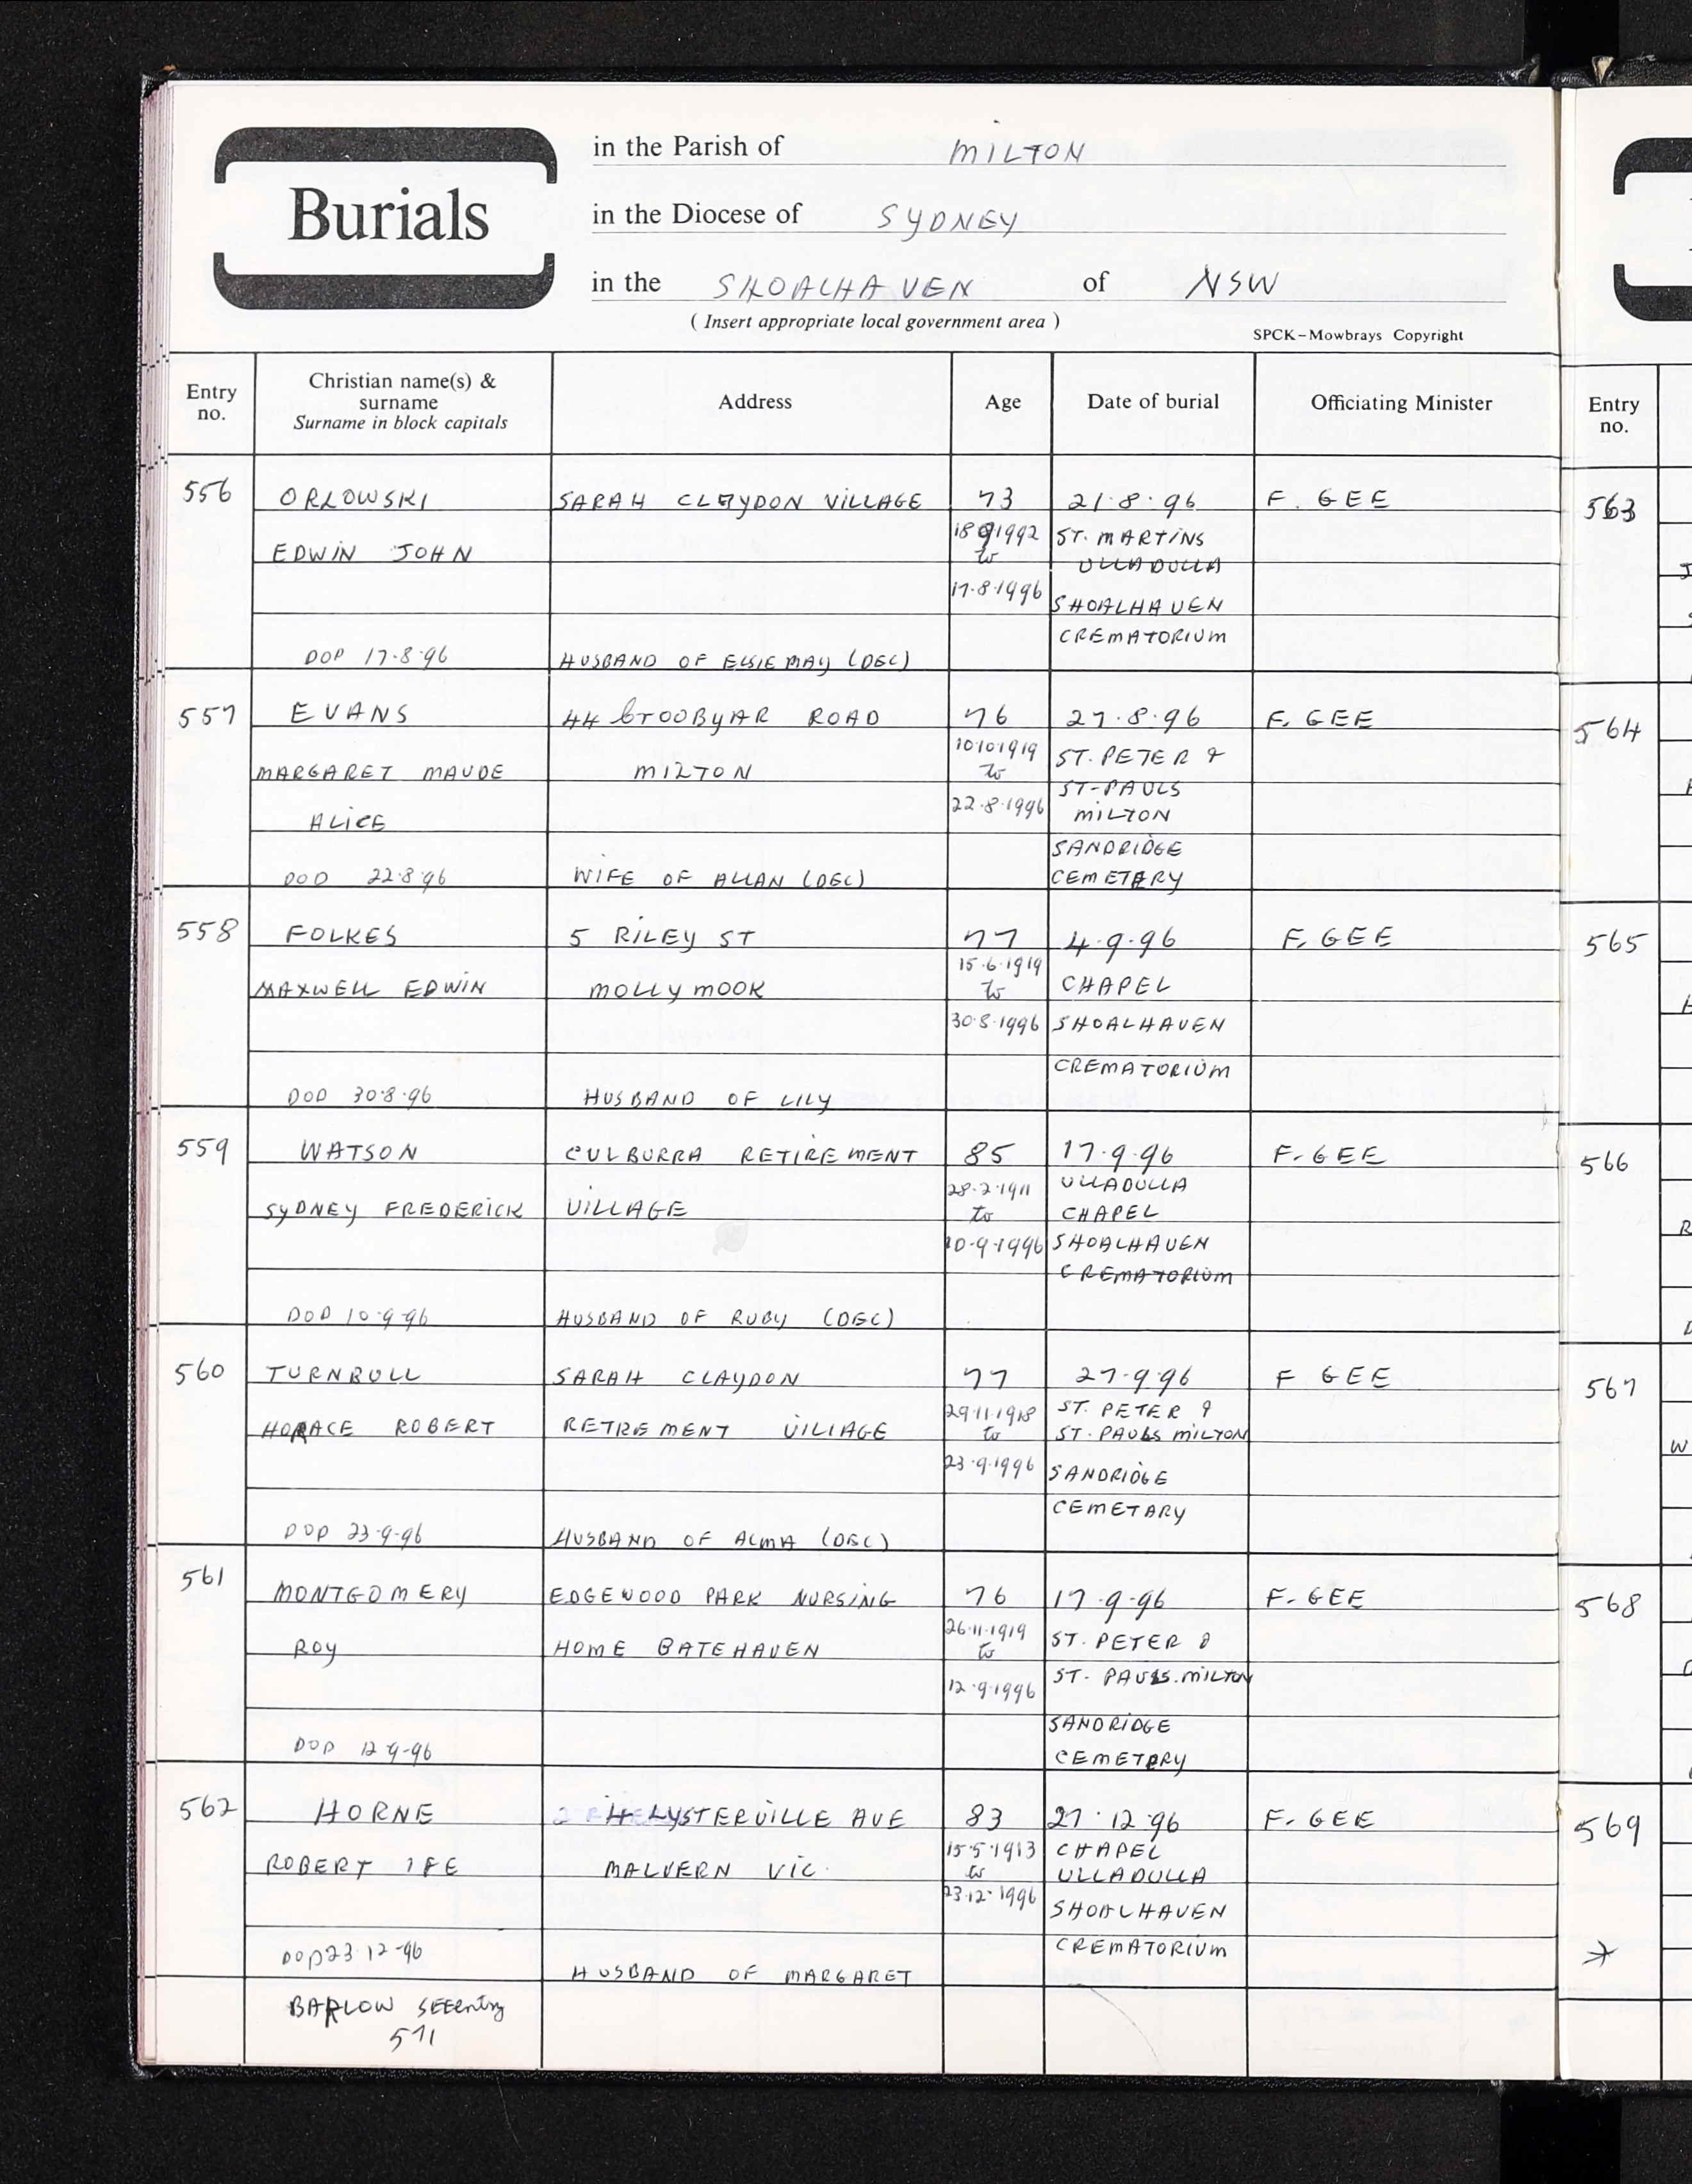 Burials
in the Parish of MILTON
in the Diocese of SYDNEY
in the SHOALHAVEN of NSW
( Insert appropriate local government area )
SPCK–Mowbrays Copyright
Entry no. Christian name(s) & surname Surname in block capitals Address Age Date of burial Officiating Minister Entry no.
556 ORLOWSKI SARAH CLAYDON VILLAGE 73 21.8.96 F. GEE 563
EDWIN JOHN 18 9 1992 to ST. MARTINS
ULLADULLA
17.8.1996 SHOALHAVEN
CREMATORIUM
DOD 17.8.96 HUSBAND OF ELSIE MAY (DEC)
557 EVANS 44 CROOBYAR ROAD 76 27.8.96 F. GEE 564
MARGARET MAUDE MILTON 10.10.1919 to ST. PETER &
ST-PAULS
ALICE 22.8.1996 MILTON
SANDRIDGE
DOD 22.8.96 WIFE OF ALLAN (DEC) CEMETARY
558 FOLKES 5 RILEY ST 77 4.9.96 F. GEE 565
MAXWELL EDWIN MOLLYMOOK 15.6.1919 to CHAPEL
30.8.1996 SHOALHAVEN
CREMATORIUM
DOD 30.8.96 HUSBAND OF LILY
559 WATSON CULBURRA RETIREMENT 85 17.9.96 F. GEE 566
ULLADULLA
SYDNEY FREDERICK VILLAGE 28.2.1911 to CHAPEL
10.9.1996 SHOALHAVEN
CREMATORIUM
DOD 10.9.96 HUSBAND OF RUBY (DEC)
560 TURNBULL SARAH CLAYDON 77 27.9.96 F GEE 567
29.11.1918 ST. PETER &
HORACE ROBERT RETIREMENT VILLAGE to ST. PAULS MILTON
23.9.1996 SANDRIDGE
CEMETARY
DOD 23.9.96 HUSBAND OF ALMA (DEC)
561 MONTGOMERY EDGEWOOD PARK NURSING 76 17.9.96 F. GEE 568
ROY HOME BATEHAVEN 26.11.1919 to ST. PETER &
12.9.1996 ST. PAULS. MILTON
SANDRIDGE
DOD 12.9.96 CEMETARY
562 HORNE LYSTERVILLE AVE 83 27.12.96 F. GEE 569
15.5.1913 CHAPEL
ROBERT IFE MALVERN VIC. to ULLADULLA
23.12.1996 SHOALHAVEN
DOD 23.12.96 CREMATORIUM
HUSBAND OF MARGARET
BARLOW SEE entry
571